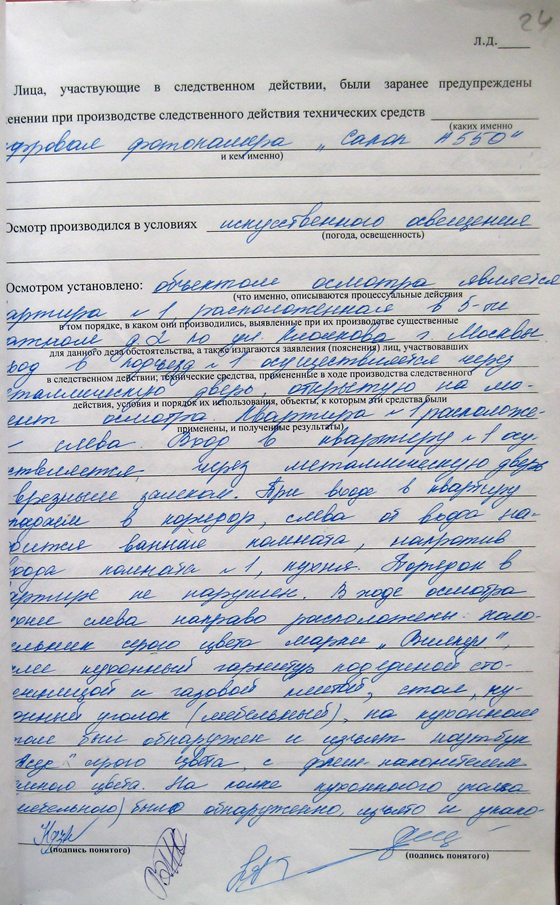 24
Л.Д.
Лица, участвующие в следственном действии, были заранее предупреждены
енении при производстве следственного действия технических средств
(каких именно
фровая фотокамера „Canon А550"
и кем именно)
Осмотр производился в условиях искуственного освещения
(погода, освещенность)
Осмотром установлено: объектом осмотра является
(что именно, описываются процессуальные действия
артира №1, расположенная в 5-ти
в том порядке, в каком они производились, выявленные при их производстве существенные
ажном д.2 по ул. г. Москвы.
для данного дела обстоятельства, а также излагаются заявления (пояснения) лиц, участвовавших
ход в подъезд №1 осуществляется через
в следственном действии; технические средства, примененные в ходе производства следственного
еталлическую дверь открытую на мо-
действия, условия и порядок их использования, объекты, к которым эти средства были
ент осмотра. Квартира №1 расположе-
применены, и полученные результаты)
слева. Вход в квартиру №1 осу-
ствляется через металлическую дверь
врезным замком. При входе в квартиру
падаем в коридор, слева от входа на-
дится ванная комната, напротив
хода комната №1, кухня. Порядок в
артире не нарушен. В ходе осмотра
хне слева направо расположены: холо-
ельник серого цвета марки
лее кухонный гарнитур под единой сто-
ешницей и газовой плитой, стол, ку-
онный уголок (мебельный), на кухонном
толе был обнаружен и изъят ноутбук
серого цвета, с флеш-накопителем
цвета. На полке кухонного уголка
мебельного) было обнаруженно, изъято и упако-
(подпись понятого)
(подпись понятого)